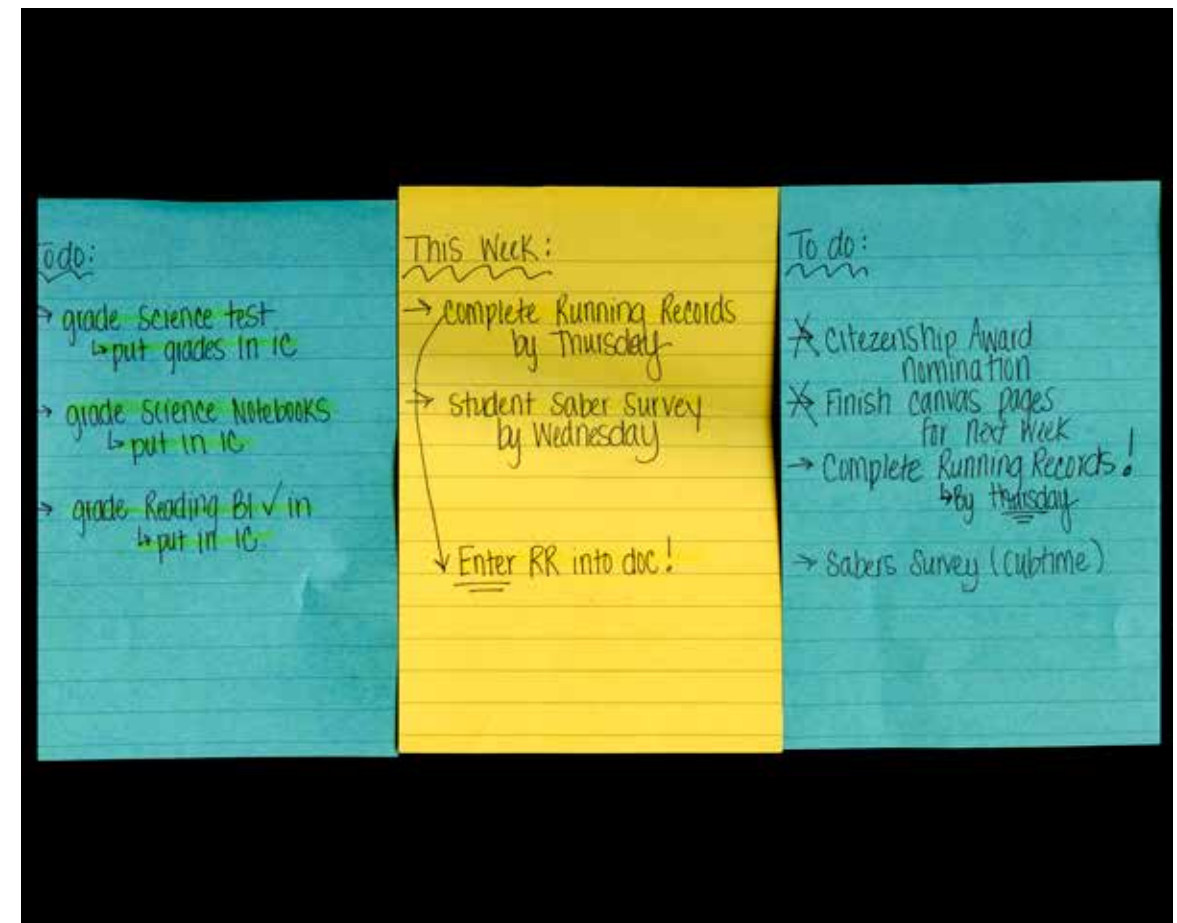 To do:
→ grade Science test
↳ put grades in IC
→ grade Science Notebooks
↳ put in IC
→ grade Reading BI ✓ in
↳ put in IC
This Week:
→ Complete Running Records
by Thursday
→ Student Saber Survey
by Wednesday
Enter RR into doc!
To do:
→ Citezenship Award
nomination
→ Finish canvas pages
for next week
→ Complete Running Records!
↳ By thursday
→ Sabers Survey (Cubtime)